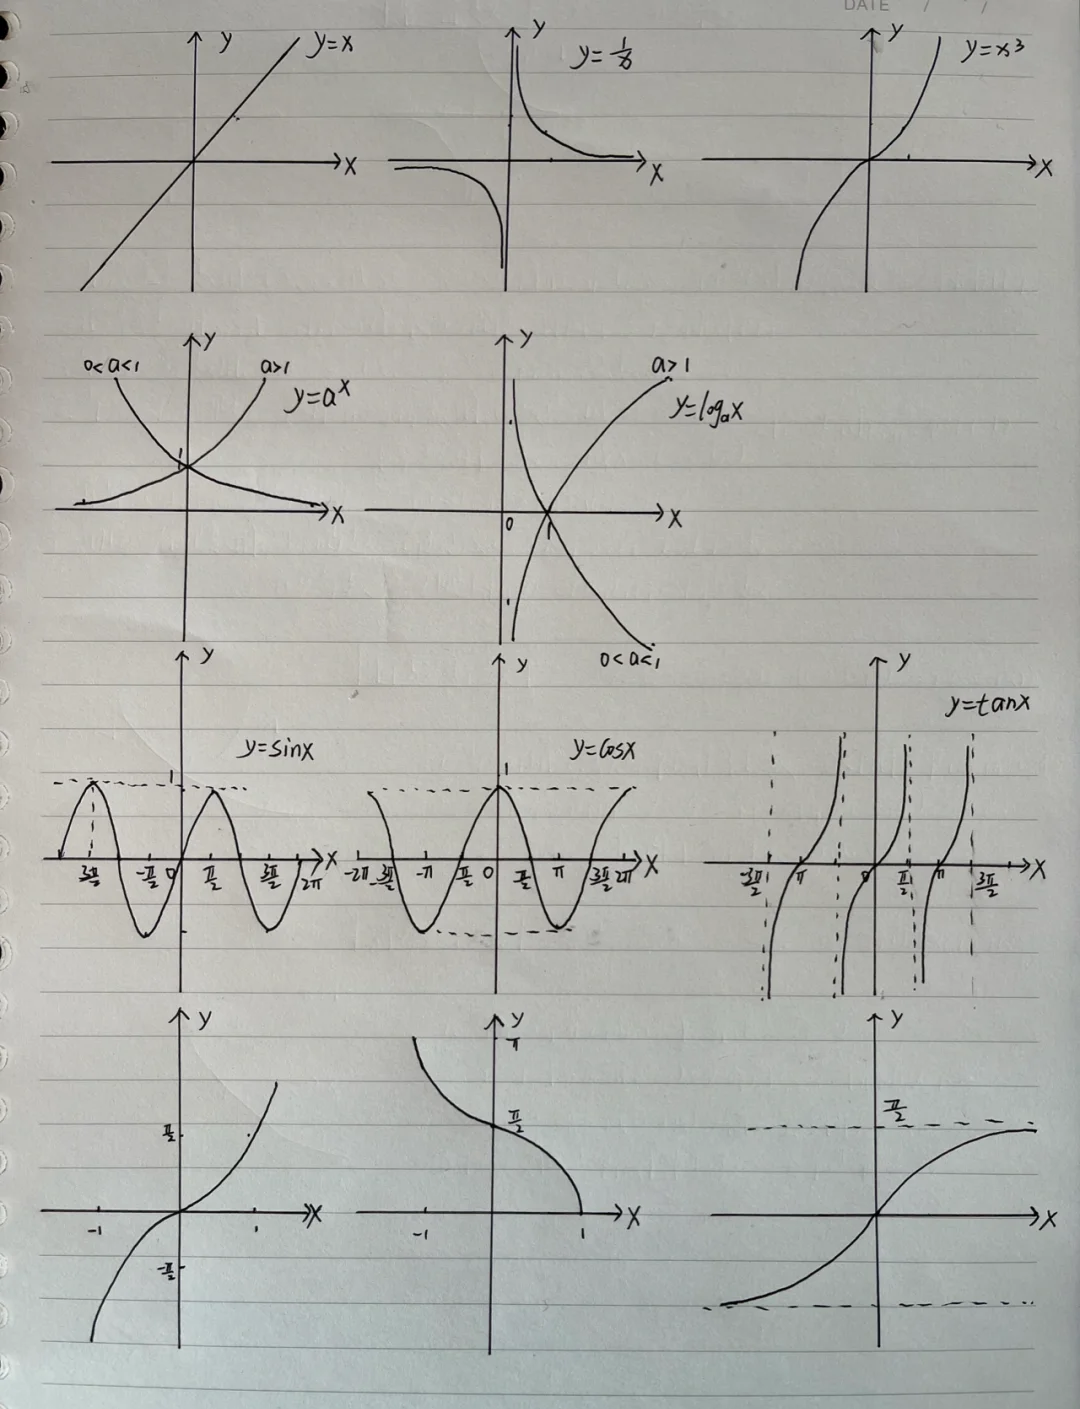 DATE / /
y y=x
x
y y=1/x
x
y y=x³
x
y
0<a<1 a>1
y=aˣ
1
x
y
a>1
y=logₐx
0 1 x
0<a<1
y
y=sinx
1
3π/2 -π/2 0 π/2 3π/2 2π x
y
y=cosx
1
-2π -3π/2 -π π/2 0 π/2 π 3π/2 2π x
y
y=tanx
-3π/2 π 0 π/2 π 3π/2 x
y
π/2
-1 x
-π/2
y
π
π/2
-1 1 x
y
π/2
x